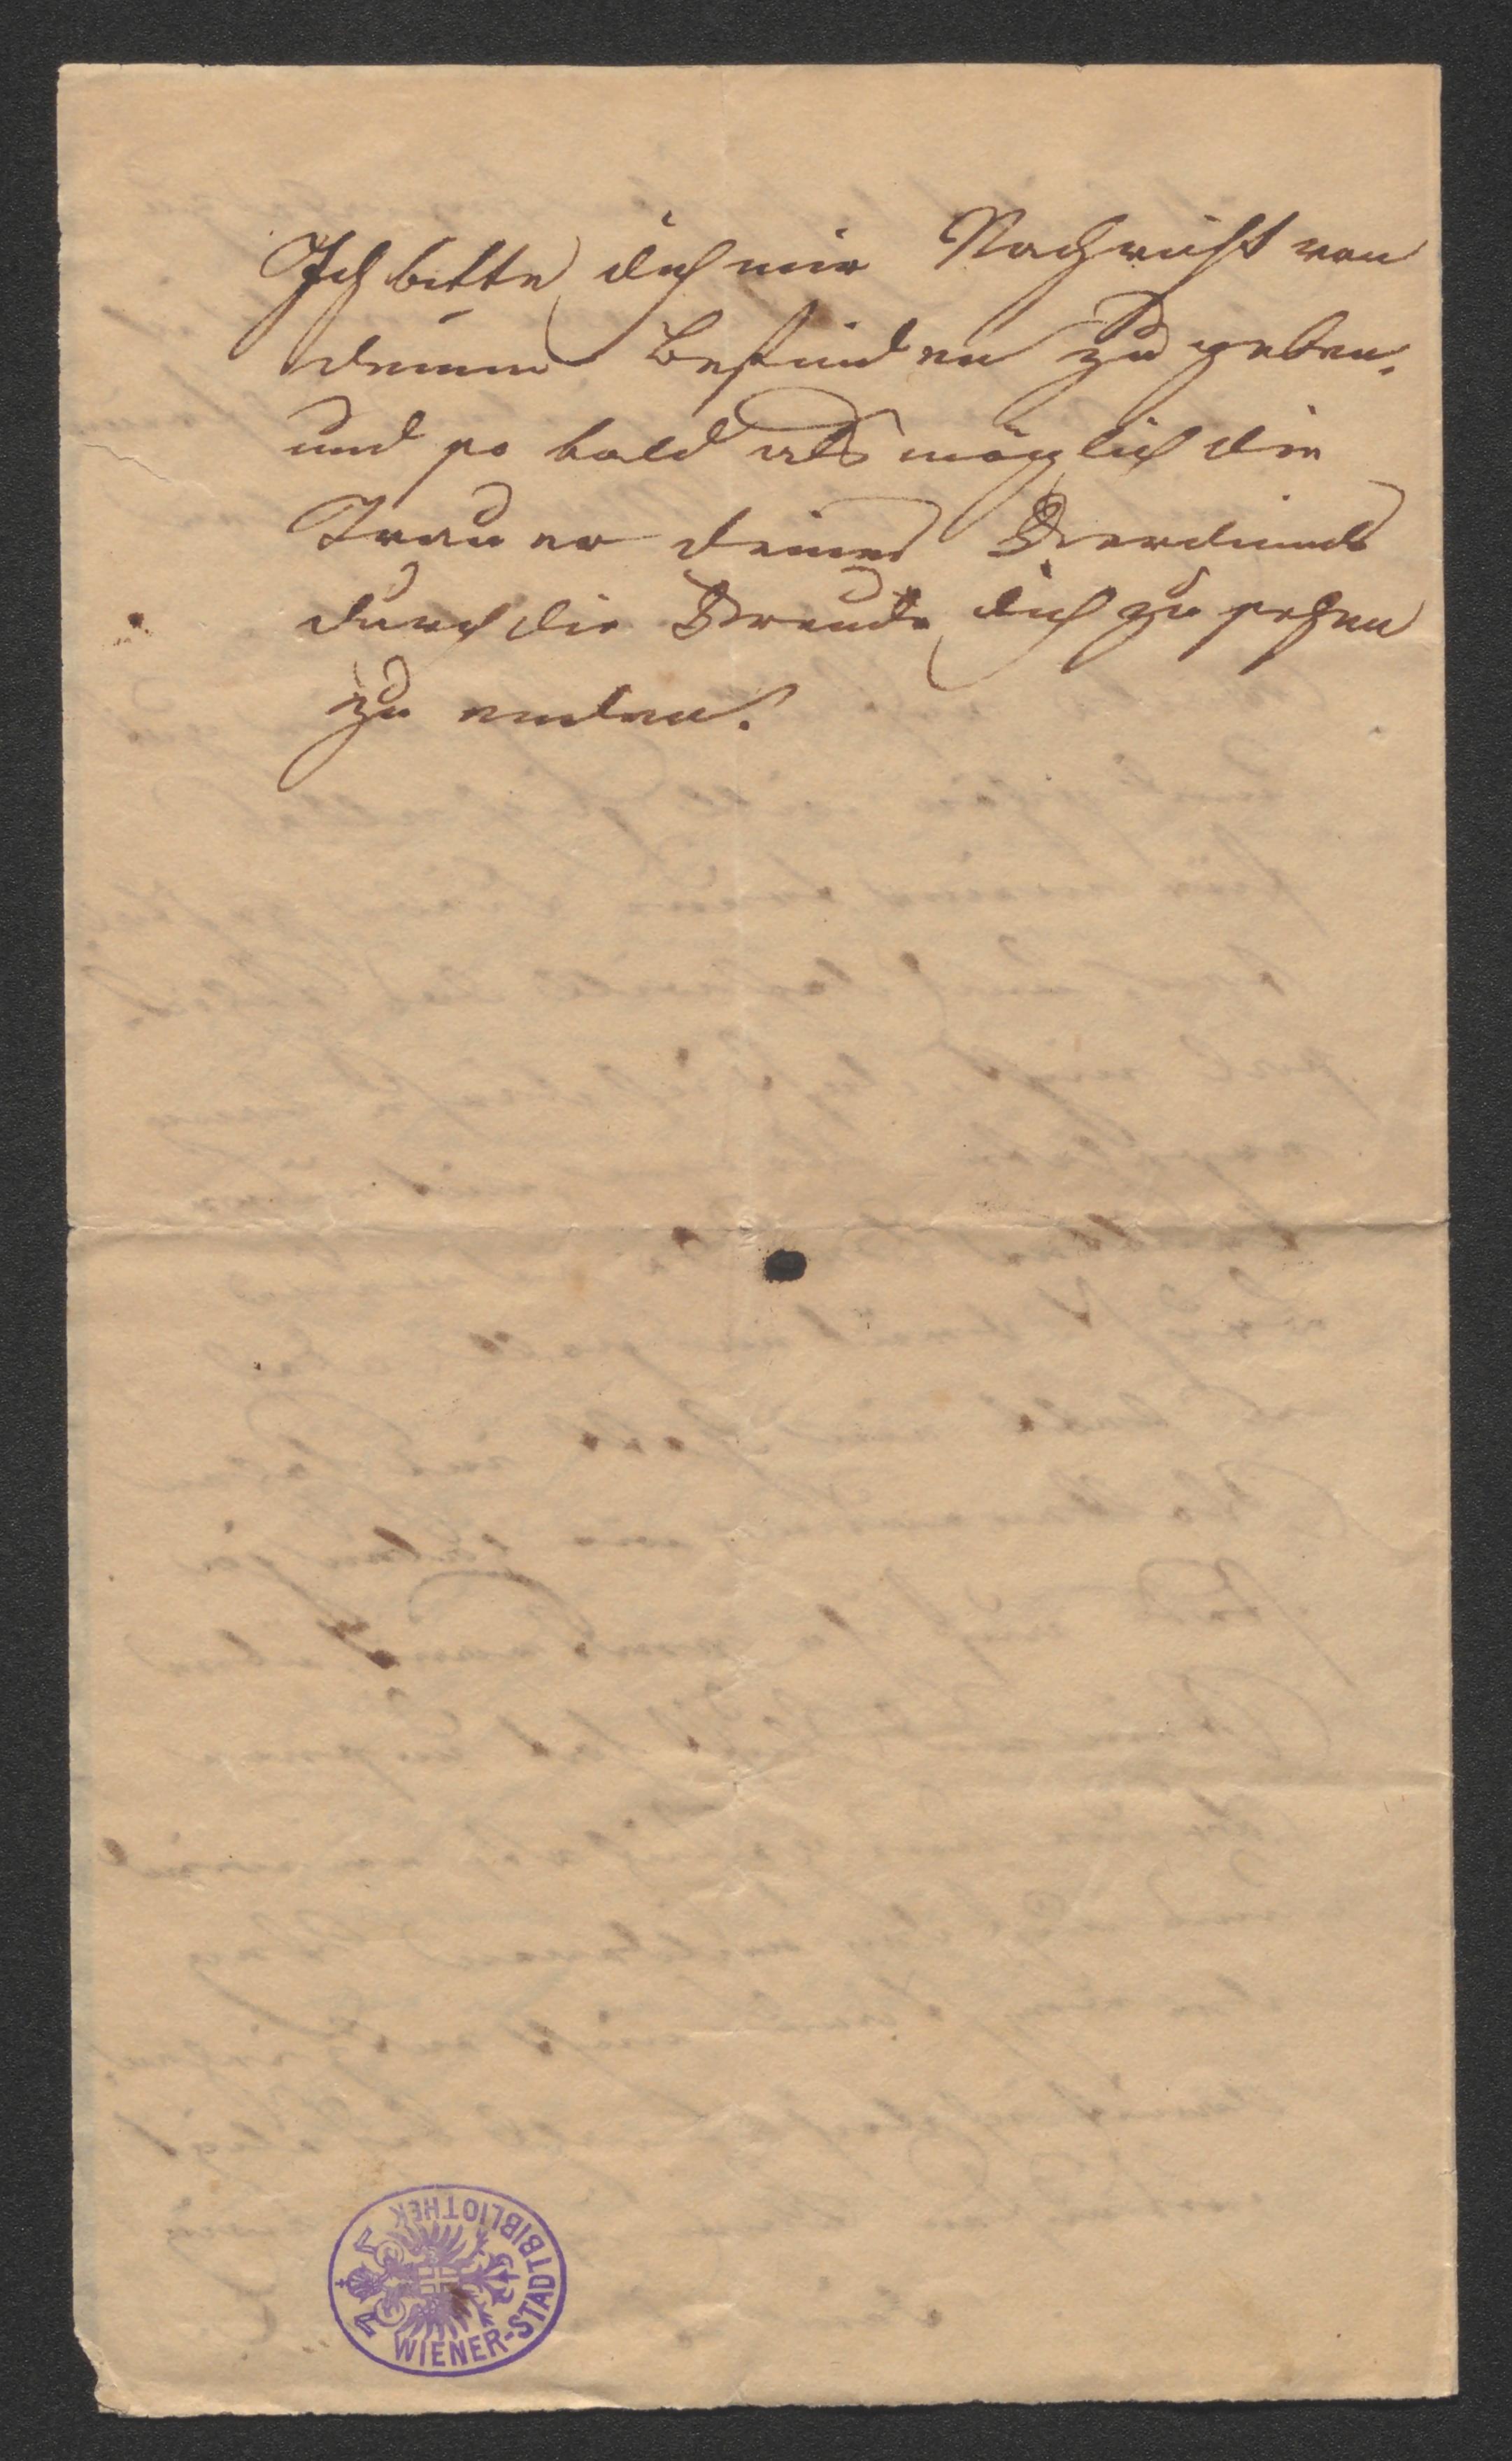 Ich bitte dich mir Nachricht von
deinem Befinden zu geben,
und so bald als möglich die
Trauer deines Ferdinands
durch die Freude dich zu sehen
zu enden.
WIENER-STADTBIBLIOTHEK